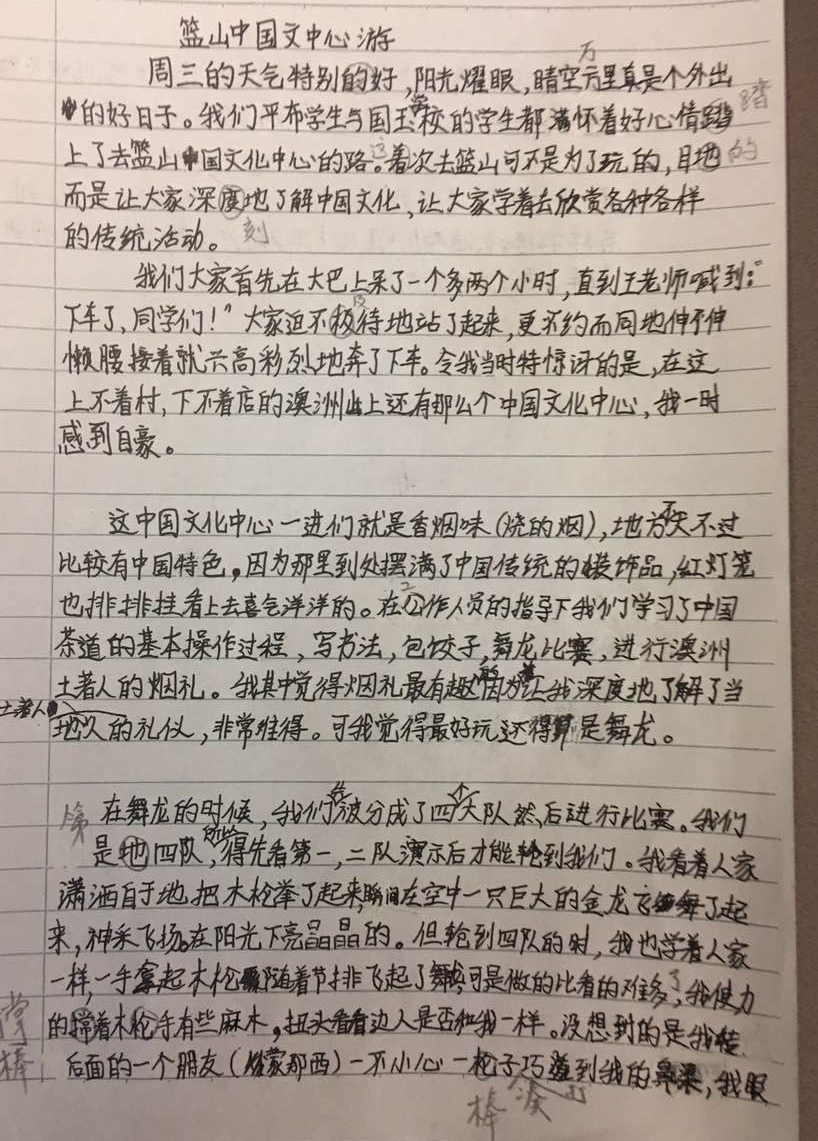 篮山中国文中心游
周三的天气特别的好,阳光耀眼,晴空万里真是个外出
的好日子。我们平布学生与国王学校的学生都满怀着好心情踏
上了去篮山中国文化中心的路。这着次去篮山可不是为了玩的,目地的
而是让大家深度地了解中国文化,让大家学着去欣赏各种各样
刻
的传统活动。
我们大家首先在大巴上呆了一个多两个小时,直到王老师喊到:“
下车了,同学们!”大家迫不及待地站了起来,更不约而同地伸了伸
懒腰接着就兴高彩烈地奔了下车。令我当时特惊讶的是,在这
上不着村,下不着店的澳洲山上还有那么个中国文化中心,我一时
感到自豪。
这中国文化中心一进们就是香烟味(烧的烟),地方不大不过
比较有中国特色,因为那里到处摆满了中国传统的装饰品,红灯笼
也排排挂看上去喜气洋洋的。在工作人员的指导下我们学习了中国
茶道的基本操作过程,写书法,包饺子,舞龙比赛,进行澳洲
土著人的烟礼。我其中觉得烟礼最有趣的因为它让我深度地了解了当
土著人
地人的礼仪,非常难得。可我觉得最好玩还得算是舞龙。
在舞龙的时候,我们被分成了四个大队然后进行比赛。我们
第
是地四队,所以得先看第一,二队演示后才能轮到我们。我看着人家
潇洒自于地把木枪举了起来,瞬间在空中一只巨大的金龙飞舞了起
来,神采飞扬,在阳光下亮晶晶的。但轮到四队的时,我也学着人家
一样,一手拿起木枪随着节排飞起了舞龙,可是做的比看的难多了,我使力
的撑着木枪手有些麻木,扭头看看边人是否和我一样。没想到的是我
掌
棒
后面的一个朋友(那西)一不小心一枪子巧到我的鼻梁,我眼
棒